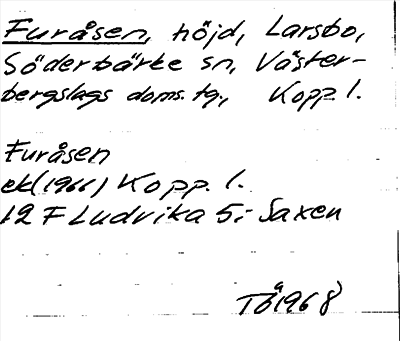 Furåsen, höjd, Larsbo,
Söderbärke sn, Väster-
bergslags doms. tg., Kopp l.
Furåsen
ek (1966) Kopp. l.
12 F Ludvika 5:- Saxen
TÅ 1968